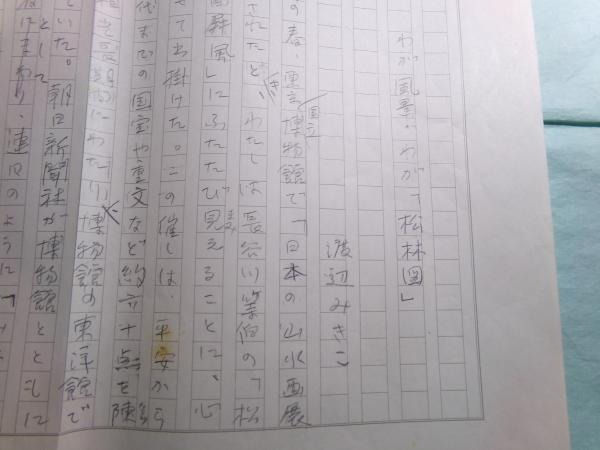 わが風景・わが「松林図」
渡辺みきこ
の春、東京国立博物館で「日本の山水画展
されたとき、わたしは長谷川等伯の「松
屏風」にふたたび見えることに、心
せて出掛けた。この催しは、平安から
代までの国宝や重文など約六十点を陳
わたり博物館の東洋館で
いた。朝日新聞社が博物館とともに
として
まわり、連日のように「